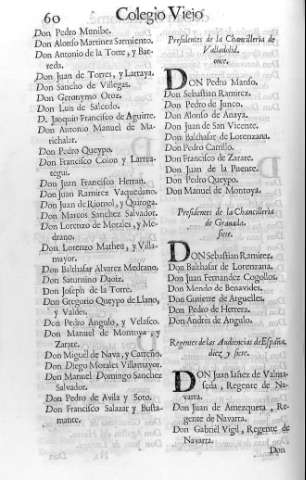 60 Colegio Viejo
Don Pedro Munibe.
Don Alonso Martinez Sarmiento.
Don Antonio de la Torre, y Bar-
reda.
Don Juan de Torres, y Larraya.
Don Sancho de Villegas.
Don Geronymo Oroz.
Don Luis de Salcedo.
D. Jacquin Francisco de Aguirre.
Don Antonio Manuel de Ma-
richalar.
Don Pedro Queypo.
Don Francisco Colon y Larria-
tegui.
Don Juan Francisco Herran.
Don Juan Ramirez Vaquedano.
Don Juan de Riomol, y Quiroga.
Don Marcos Sanchez Salvador.
Don Lorenzo de Morales, y Me-
drano.
Don Lorenzo Matheu, y Villa-
mayor.
Don Balthasar Alvarez Medrano.
Don Saturnino Daoiz.
Don Joseph de la Torre.
Don Gregorio Queypo de Llano,
y Valdes.
Don Pedro Angulo, y Velasco.
Don Manuel de Montoya y
Zarate.
Don Miguel de Nava, y Carreño.
Don Diego Morales Villamayor.
Don Manuel Domingo Sanchez
Salvador.
Don Pedro de Avila y Soto.
Don Francisco Salazar y Busta-
mante.
Presidentes de la Chancilleria de
Valladolid,
once.
DON Pedro Manso.
Don Sebastian Ramirez.
Don Pedro de Junco.
Don Alonso de Anaya.
Don Juan de San Vicente.
Don Balthasar de Lorenzana.
Don Pedro Carrillo.
Don Francisco de Zarate.
Don Juan de la Puente.
Don Pedro Queypo.
Don Manuel de Montoya.
Presidentes de la Chancilleria
de Granada,
siete.
DON Sebastian Ramirez.
Don Balthasar de Lorenzana.
Don Juan Fernandez Cogollos.
Don Mendo de Benavides.
Don Gutierre de Arguelles.
Don Pedro de Herrera.
Don Andres de Angulo.
Regentes de las Audiencias de España,
diez y siete.
DON Juan Iañez de Valma-
seda, Regente de Na-
varra.
Don Juan de Amezqueta, Re-
gente de Navarra.
Don Gabriel Vigil, Regente de
Navarra.
Don